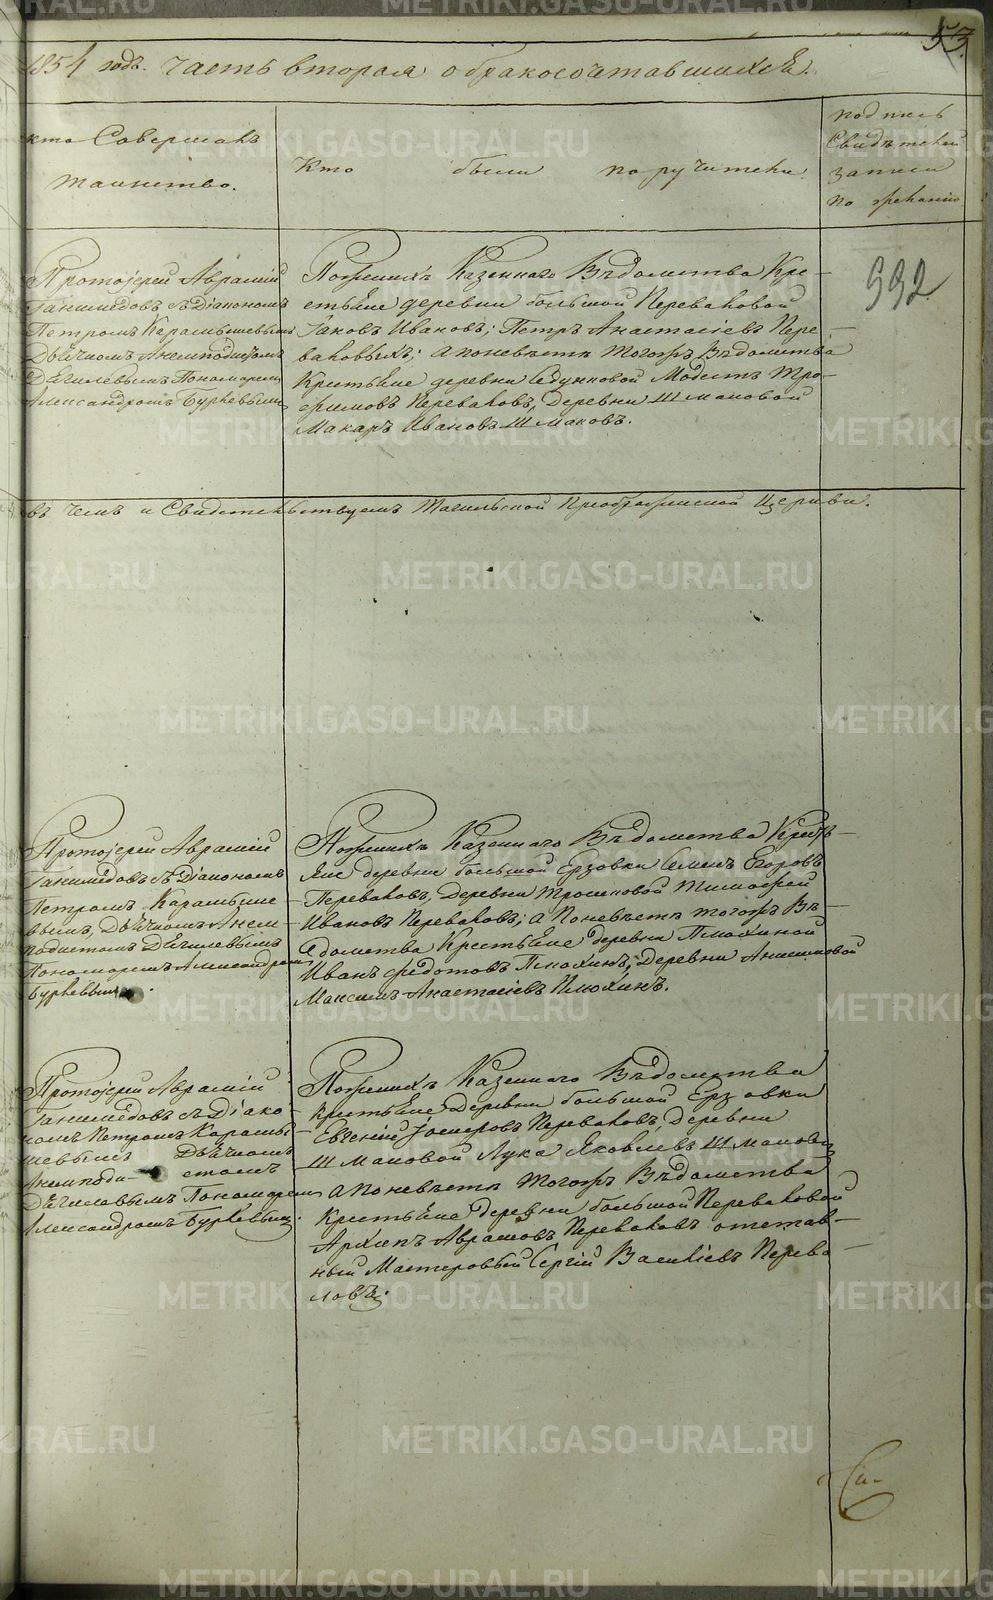 53
1854 годъ. Часть вторая о бракосочетавшихся.
кто Совершалъ
таинство.
Кто были поручители.
подпись
Свидѣтелей
записи
по желанію
992
Протоіерей Аврамій
Ганимедовъ съ Діакономъ
Петромъ Карамышевымъ
Дьячкомъ Анемподистомъ
Дягилевымъ Пономаремъ
Александромъ Бурлевымъ
По женихѣ Казеннаго Вѣдомства Кре-
стьяне деревни большой Переваловой
Іаковъ Ивановъ; Петръ Анастасіевъ Пере-
валовыхъ; а по невѣстѣ тогожъ Вѣдомства
Крестьяне деревни Седунковой Модестъ Тро-
фимовъ Переваловъ, деревни Шмаковой
Макаръ Ивановъ Шмаковъ.
въ чемъ и Свидетельствуемъ Тагильской Преображенской Церкви.
Протоіерей Аврамій
Ганимедовъ съ Діакономъ
Петромъ Карамыше-
вымъ, Дьячкомъ Анем-
подистомъ Дягилевымъ
Пономаремъ Александромъ
Бурлевымъ.
По женихѣ Казеннаго Вѣдомства Кресть-
яне деревни большой Ерзовки Семенъ Егоровъ
Переваловъ, деревни Тимофей
Ивановъ Переваловъ; а по невѣстѣ тогожъ Вѣ-
домства Крестьяне деревни Плюхиной
Иванъ Федотовъ Плюхинъ; деревни Анисимовой
Максимъ Анастасіевъ Плюхинъ.
Протоіерей Аврамій
Ганимедовъ съ Діако-
номъ Петромъ Карамы-
шевымъ Дьячкомъ
Анемподи- стомъ
Дягилевымъ Пономаремъ
Александромъ Бурлевымъ.
По женихѣ Казеннаго Вѣдомства
крестьяне деревни большой Ерзовки
Евгеній Переваловъ, деревни
Шмаковой Лука Яковлевъ Шмаковъ
а по невѣстѣ тогожъ Вѣдомства
Крестьяне деревни большой Переваловой
Архипъ Аврамовъ Переваловъ отстав-
ный Мастеровый Сергій Василіевъ Перева
ловъ.